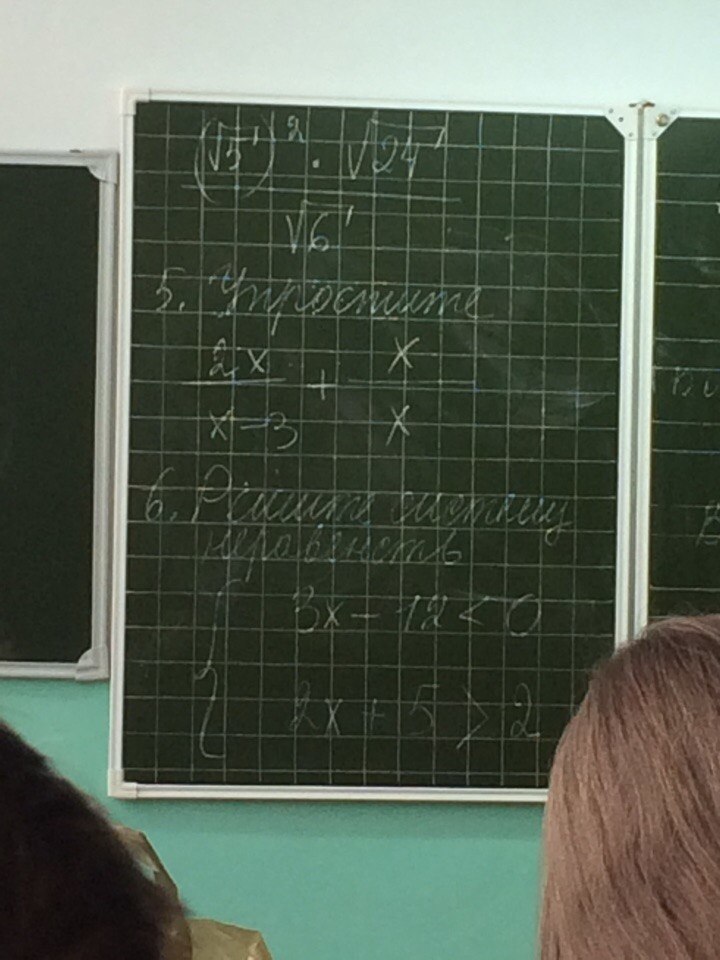 (√5)² · √24
√6
5. Упростите
2x/(x-3) + x/x
6. Решите систему
неравенств
{ 3x - 12 < 0
2x + 5 > 2